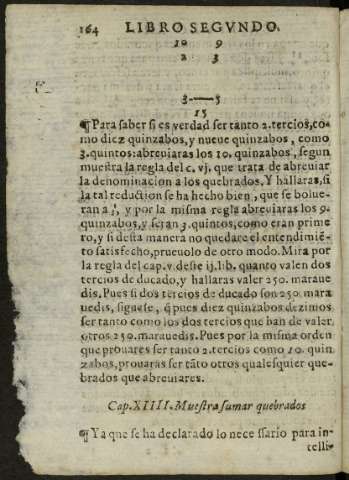 164 LIBRO SEGVNDO.
10 9
2 3
3——5
15
¶Para saber si es verdad ser tanto 2.tercios, co-
mo diez quinzabos, y nueue quinzabos, como
3.quintos: abreuiaras los 10. quinzabos, segun
muestra la regla del c. vj. que trata de abreuiar
la denominacion a los quebrados. Y hallaras, si
la tal reduction se ha hecho bien, que se bolue-
ran a, y por la misma regla abreuiaras los 9.
quinzabos, y seran 3. quintos, como eran prime
ro, y si desta manera no quedare el entendimiē-
to satisfecho, prueualo de otro modo. Mira por
la regla del cap. v. deste ij. lib. quanto valen dos
tercios de ducado, y hallaras valer 250. maraue
dis. Pues si dos tercios de ducado son 250. mara
uedis, siguese, q̃ pues diez quinzabos dezimos
ser tanto como los dos tercios que han de valer
otros 250. marauedis. Pues por la misma orden
que prouares ser tanto 2. tercios como 10. quin
zabos, prouaras ser tāto otros qualesquier que-
brados que abreuiares.
Cap. XIIII. Muestra sumar quebrados
¶Ya que se ha declarado lo nece ssario para in-
telli-